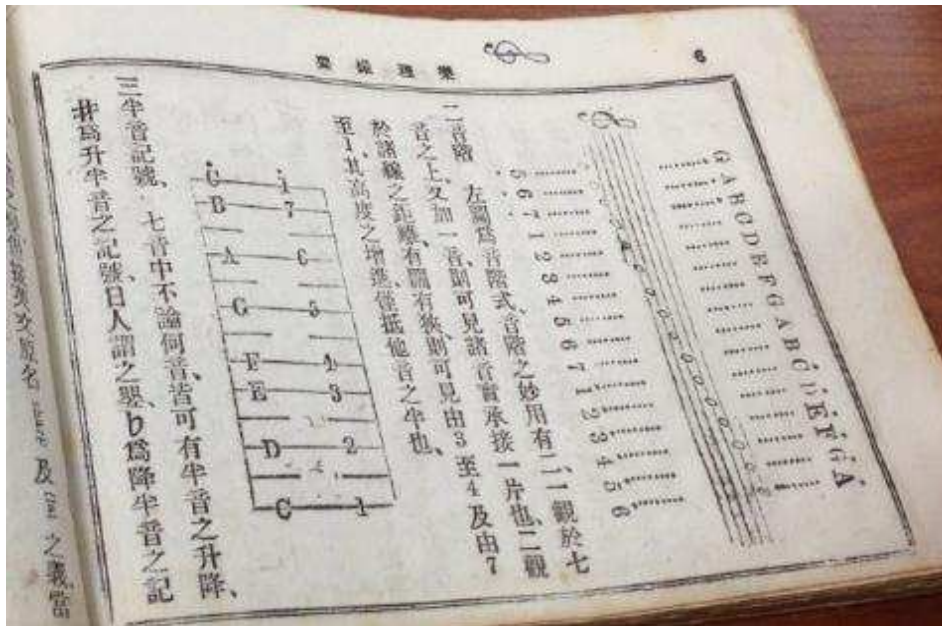 樂理
6
G A B C D E F G A B Ċ Ḋ Ė Ḟ Ġ Ȧ
5 6 7 1 2 3 4 5 6 7 1 2 3 4 5 6
二音階 左圖爲音階式、音階之妙用有二、一觀於七
音之上、又加一音、則可見諸音實承接一片也、二觀
於諸線之距離、有闊有狹、則可見由3至4及由7
至1、其高度之增進、僅抵他音之半也、
Ċ i
B 7
A 6
G 5
F 4
E 3
D 2
C 1
三半音記號、七音中不論何音、皆可有半音之升降、
♯爲升半音之記號、日人謂之嬰、b爲降半音之記
及 之義當